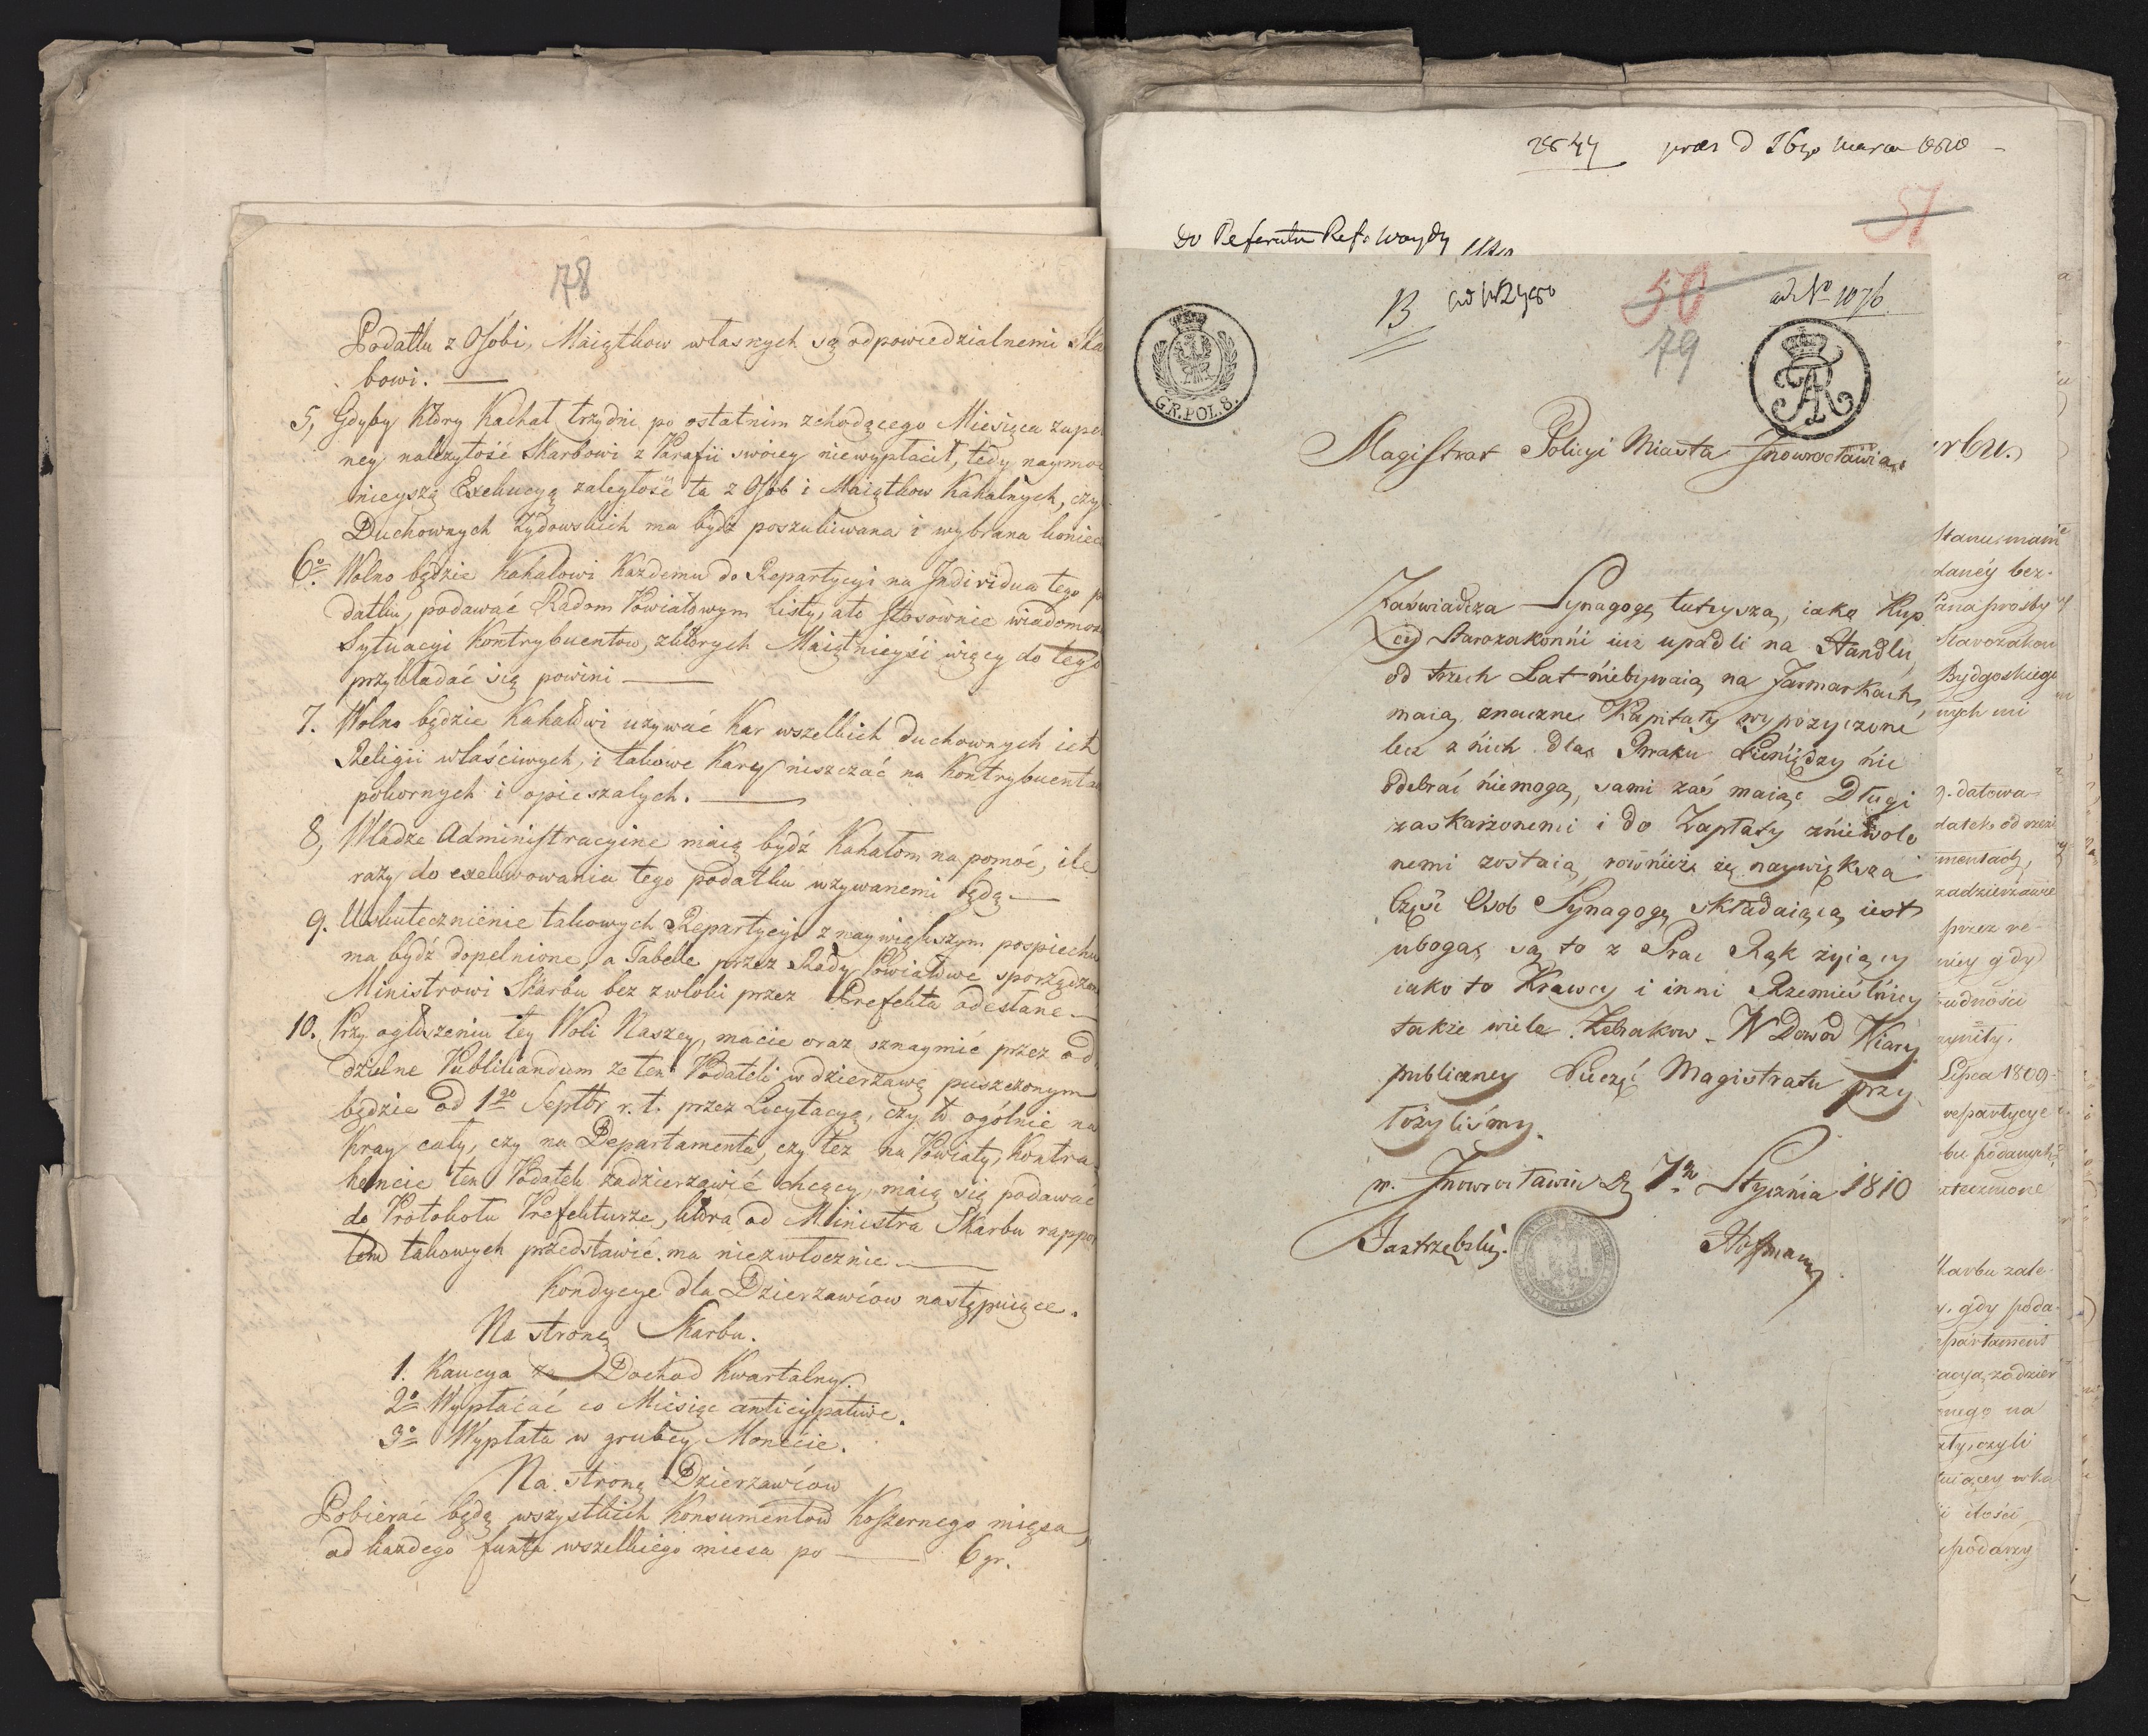 78
Podatku z Osobi, Maiątkow własnych są odpowiedzialnemi Ska
bowi. —
5, Gdyby Który Kachał trzy dni po ostatnim zchodzącego Miesiąca zupeł
ney należytość Skarbowi z Parafii swoiey niewypłacił, tedy naymoc
nieyszą Exekucyą zaległość ta z Osob i Maiątkow Kahalnych, czy
Duchownych Żydowskich ma bydź poszukiwana i wybrana koniec
6o. Wolno będzie Kahałowi Każdemu do Repartycyi na Individua tego po
datku, podawać Radom Powiatowym Listy, ato stosownie wiadomości
Sytuacyi Kontrybuentow, z których Maiętnieyśi więcy do tego
przykładać się powinni —
7. Wolno będzie Kahałowi używać Kar wszelkich duchownych ich
Religii właściwych, i takowe Kary niszczać na Kontrybuentach
pokornych i opieszałych. —
8, Władze Administracyine maią bydź Kahałom na pomoc, ile
razy do exekwowania tego podatku wzywanemi będą. —
9. Uskutecznienie takowych Repartycyi z naywiększym pospiechu
ma bydź dopełnione, a Tabelle przez Rady Powiatowe sporządzon
Ministrowi Skarbu bez zwłoki przez Prefekta odesłane. —
10. Przy ogłoszeniu tey Woli Naszey, macie oraz oznaymić przez od
dzielne Publikandum że ten Podatek w dzierżawę puszczonym
będzie od 1go Septbr r. t. przez Licytacyą, czy to ogólnie na
Kray cały, czy na Departamenta, czy też na Powiaty, Kontra
hencie ten Podatek zadzierżawić chcący, maią się podawać
do Protokołu Prefekturze, która od Ministra Skarbu rappor
tem takowych przedstawić ma niezwłocznie. —
Kondycye dla Dzierżawców następuiące.
Na stronę Skarbu.
1. Kaucya za Dochod Kwartalny.
2o Wypłacać co Miesiąc anticypative.
3o Wypłata w grubey Monecie.
Na stronę Dzierżawców
Pobierać będą wszystkich Konsumentow Koszernego mięsa,
od każdego funta wszelkiego miesa po — 6 gr.
2844 praes d 26go Marca 1810 -
51
Do Referatu Ref.
B
50
ad No 1076.
79
GR. POL. 8.
Magistrat Policyi Miasta Jnowrocławia
Zaświadcza Synagogę tuteyszą, iako Kup
cy Starozakonni iuż upadli na Handlu,
od trzech Lat niebywaią na Jarmarkach,
maią znaczne Kapitały wypożyczone
lecz z nich dla Braku Pieniędzy nic
odebrać niemogą, sami zaś maiąc Długi
zaskarżonemi i do Zapłaty zniewolo
nemi zostaią, rownież że naywiększa
Część Osob Synagogę składaiącą iest
uboga, są to z Prac Rąk żyiący
iako to Krawcy i inni Rzemieślnicy
także wiele Żebrakow. W Dowod Wiary
publiczney Pieczęć Magistratu przy
łożyliśmy.
w Jnowrocławiu D 7o Stycznia 1810
Jastrzębski. Hoffmann
rbu.
Stanu, mam
daney bez-
Pana prosby
Starozakon
Bydgoskiego
nych mi
datowa-
zadzierżawie
przez re-
gdy
Lipca 1809
repartycye
bu podanych
Skarbu zale-
gdy poda-
epartament
zadzier
nego na
czyli
i ilości